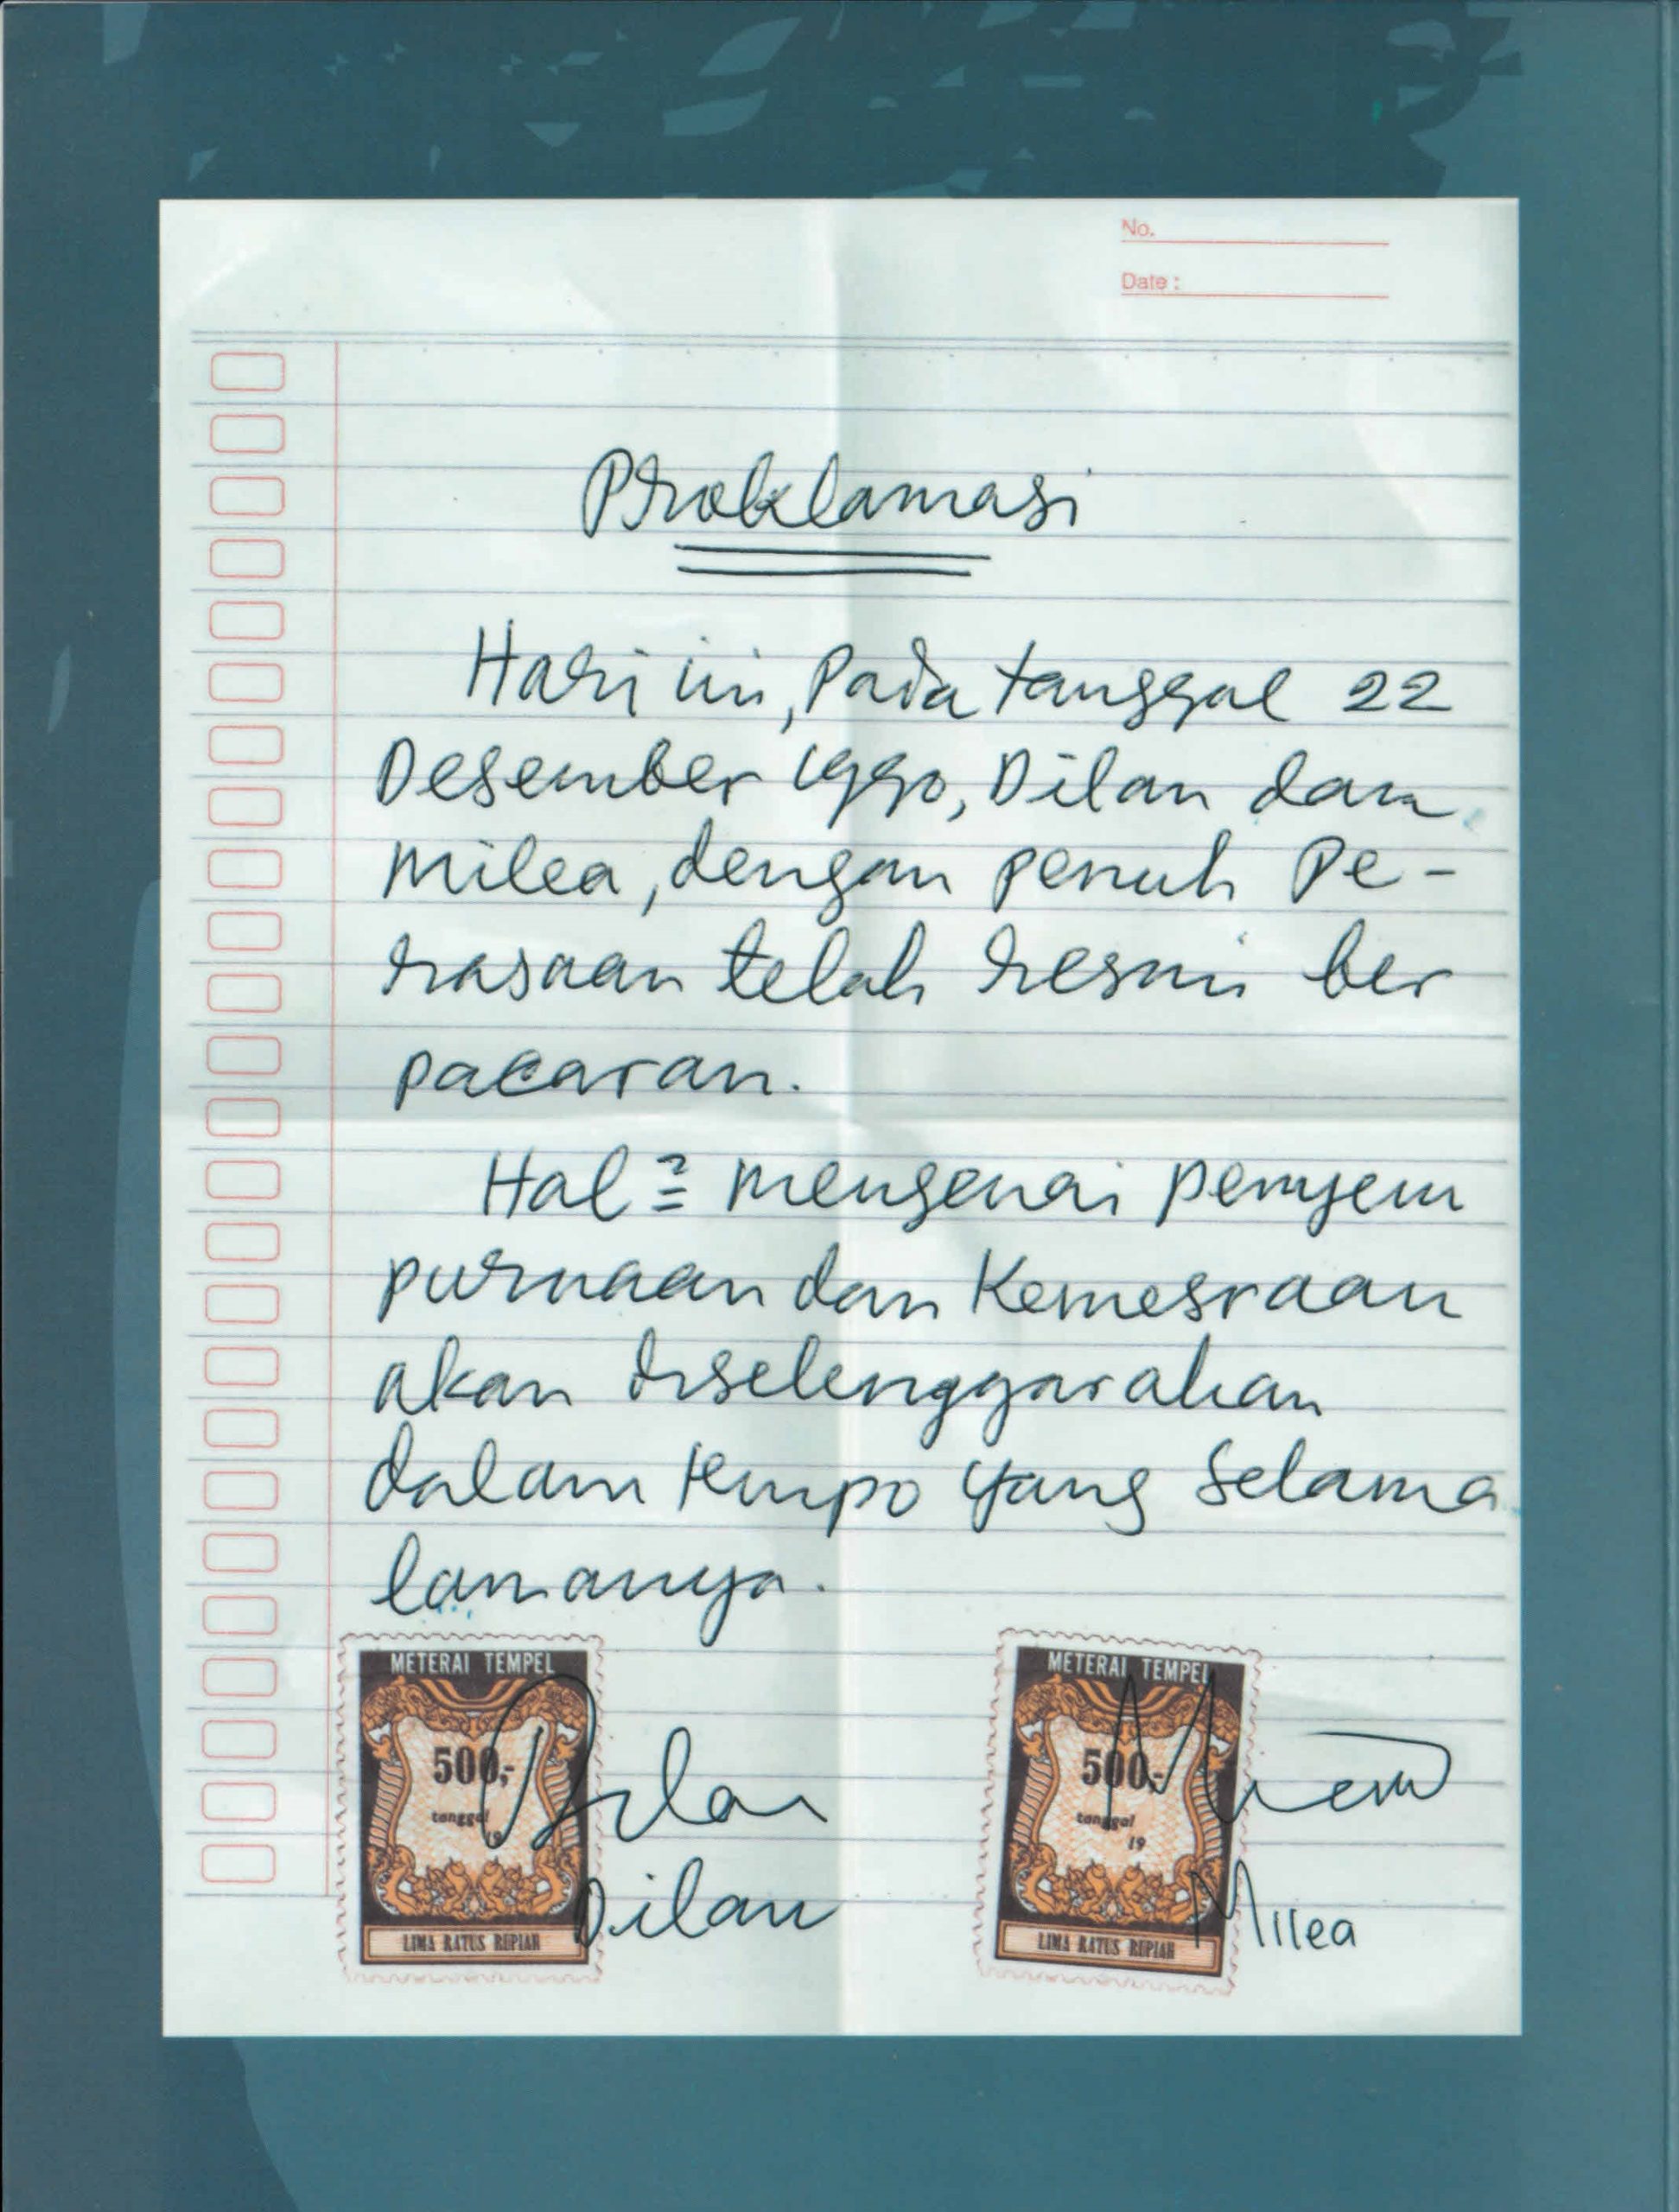 No.
Date :
Proklamasi
Hari ini, Pada tanggal 22
Desember 1990, Dilan dan
Milea, dengan penuh Pe-
rasaan telah resmi ber
pacaran.
Hal² mengenai penyem
purnaan dan Kemesraan
akan diselenggarakan
dalam tempo yang Selama
lamanya.
METERAI TEMPEL
500,-
tanggal
19
LIMA RATUS RUPIAH
Dilan
Dilan
METERAI TEMPEL
500,-
tanggal
19
LIMA RATUS RUPIAH
Milea